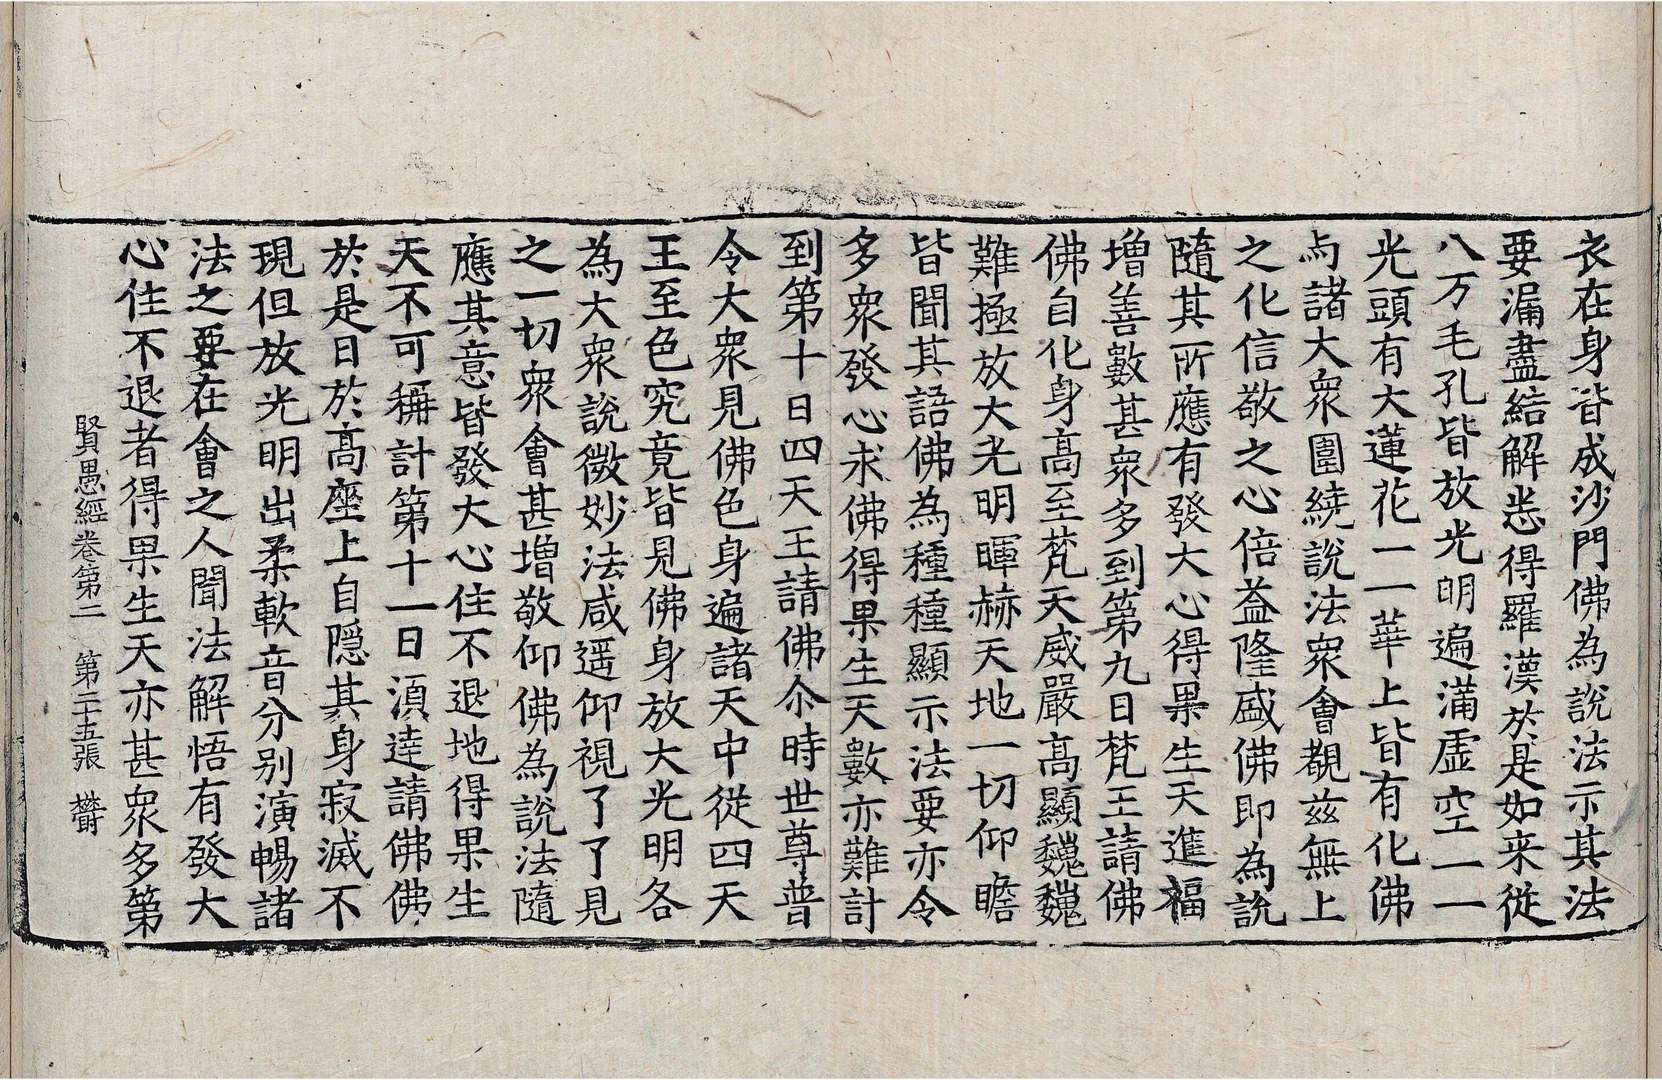 衣在身皆成沙門佛為說法示其法
要漏盡結解悉得羅漢於是如来從
八万毛孔皆放光明遍滿虛空一一
光頭有大蓮花一一華上皆有化佛
与諸大眾圍繞說法眾會覩茲無上
之化信敬之心倍益隆盛佛即為說
隨其所應有發大心得果生天進福
增善數甚眾多到第九日梵王請佛
佛自化身高至梵天威嚴高顯巍巍
難極放大光明暉赫天地一切仰瞻
皆聞其語佛為種種顯示法要亦令
多眾發心求佛得果生天數亦難計
到第十日四天王請佛尒時世尊普
令大眾見佛色身遍諸天中從四天
王至色究竟皆見佛身放大光明各
為大眾說微妙法咸遥仰視了了見
之一切眾會甚增敬仰佛為說法隨
應其意皆發大心住不退地得果生
天不可稱計第十一日湏達請佛佛
於是日於高座上自隱其身寂滅不
現但放光明出柔軟音分別演暢諸
法之要在會之人聞法解悟有發大
心住不退者得果生天亦甚眾多第
賢愚經卷第二 第二十五張 欝